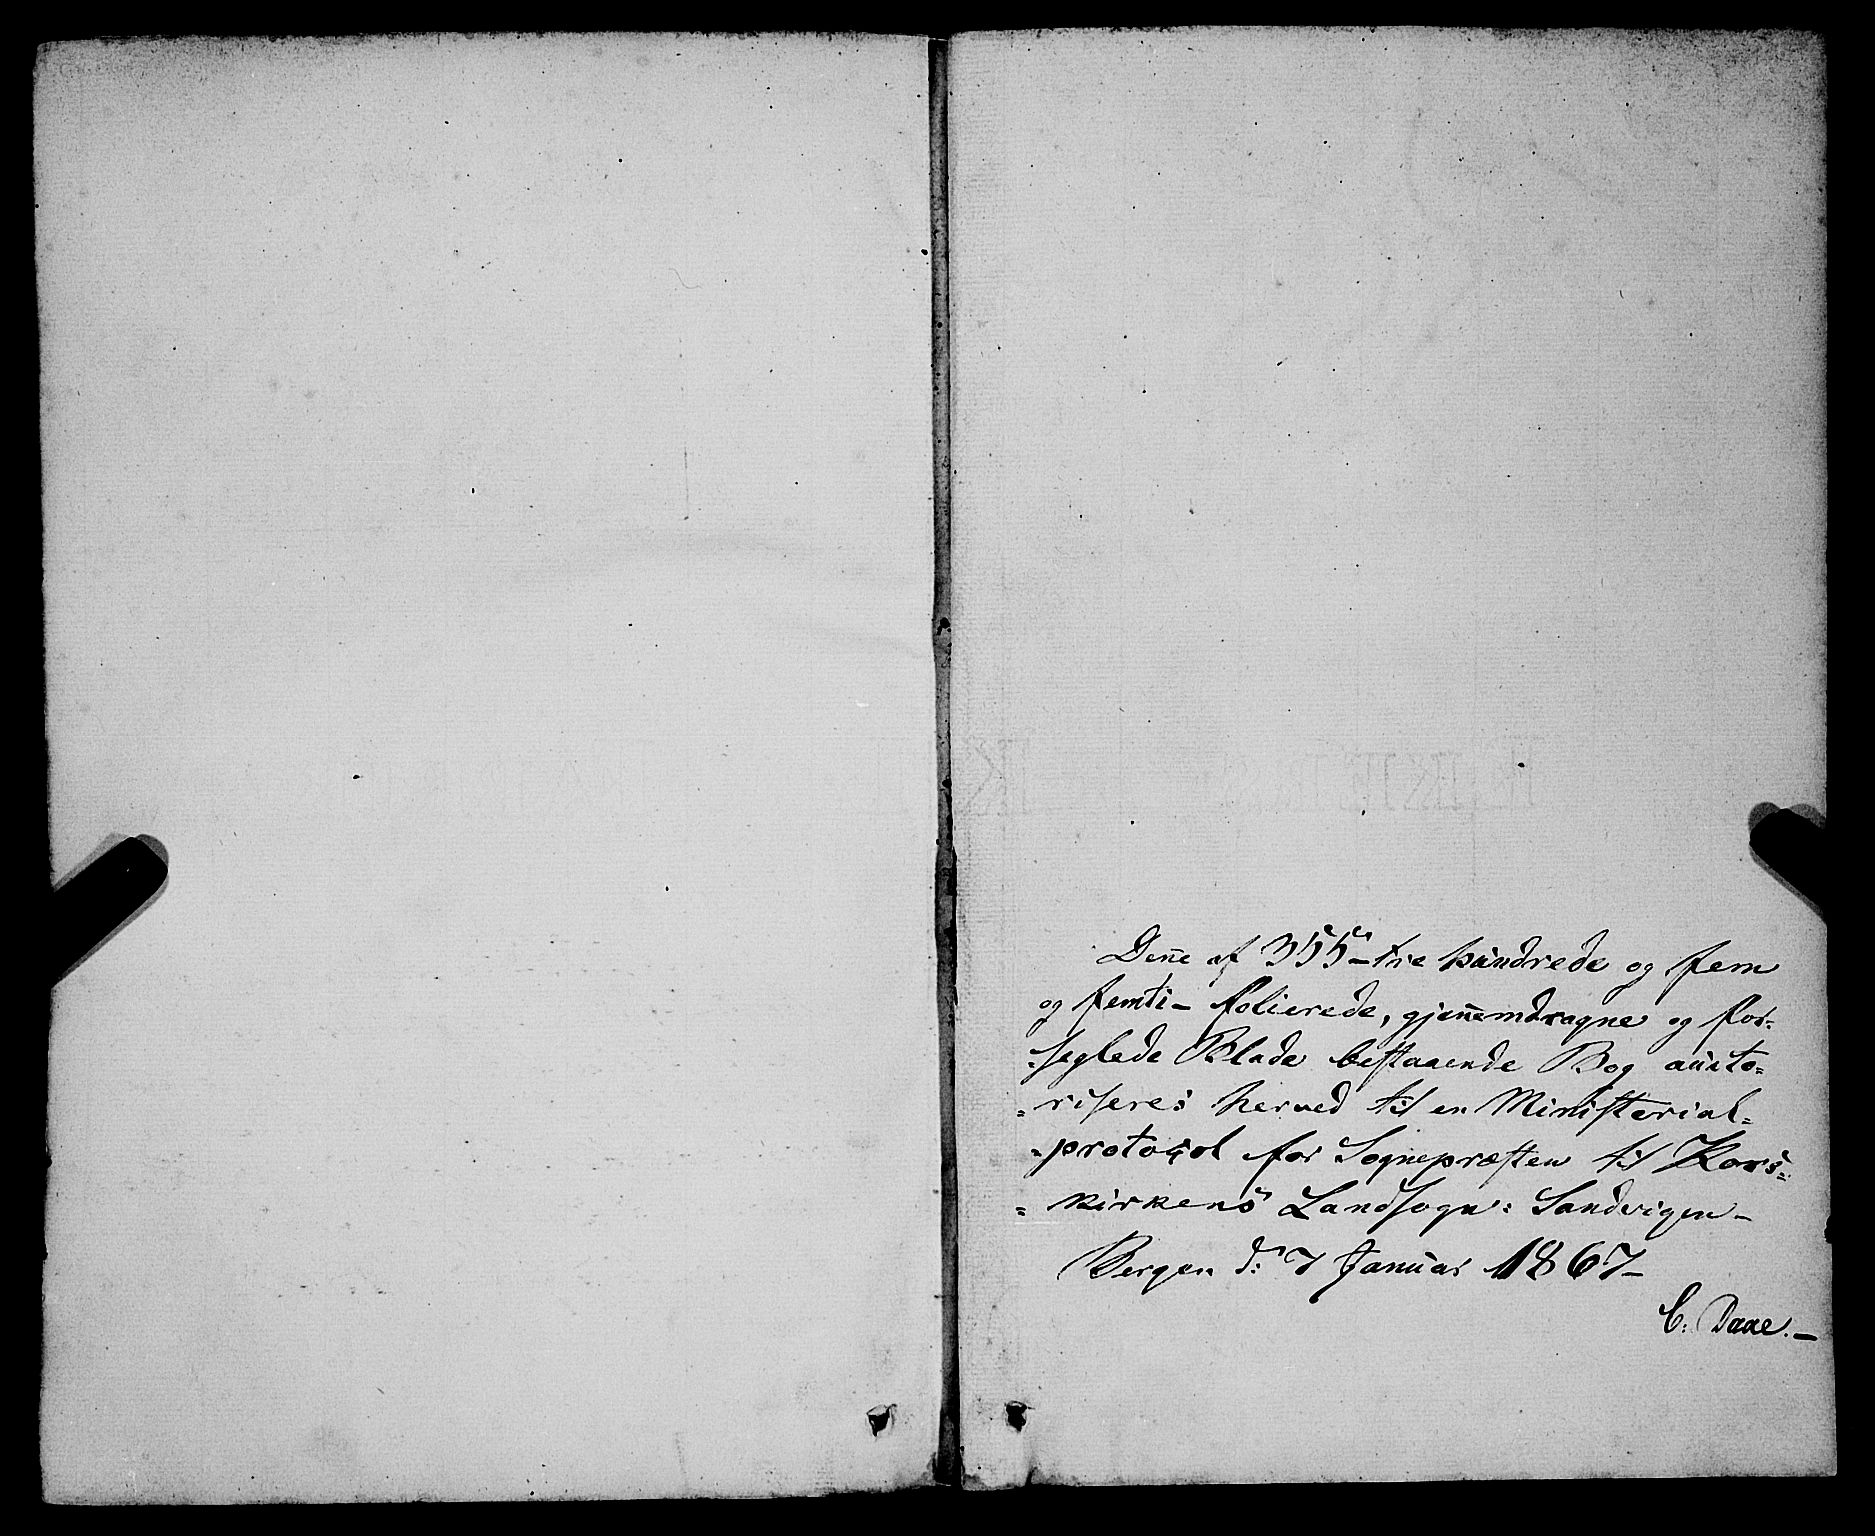 Den̄e af 355 – tre hundrede og fem
og femti – folierede, gjen̄emdragne og for-
-seglede Blade bestaaende Bog aucto-
-riseres herved til en Ministerial-
-protocol for Sognepræsten til Kors-
-kirkens Landsogn: Sandvigen –
Bergen d: 7 Januar 1867 –
C. Daae. –